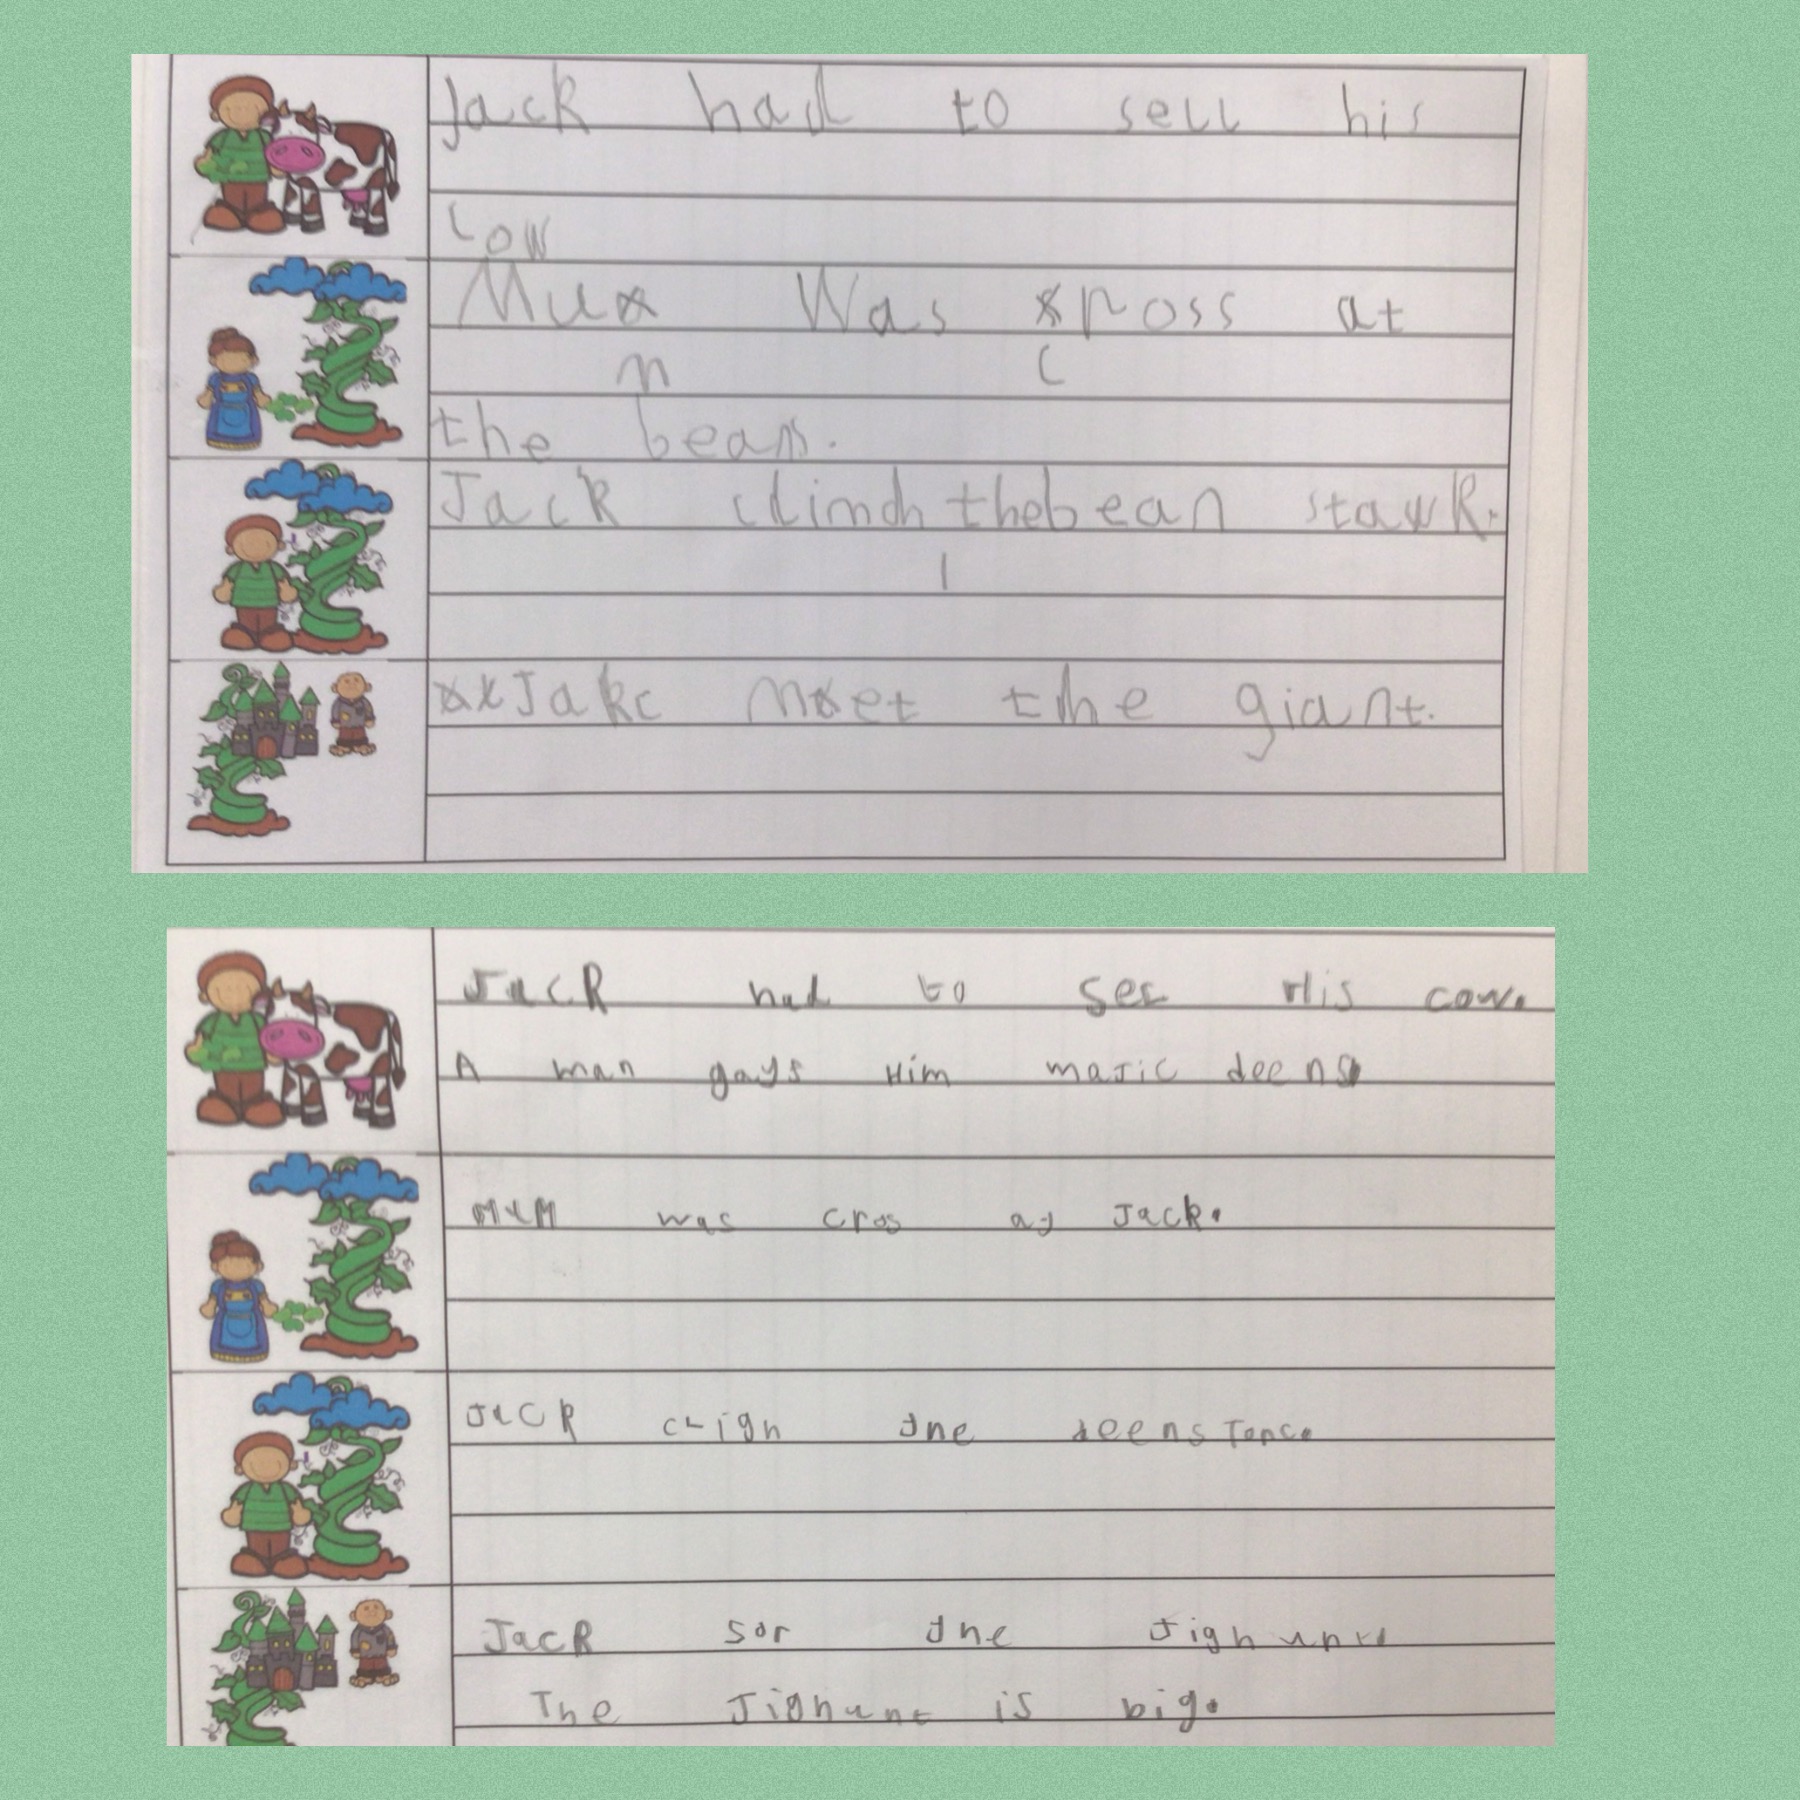 Jack had to sell his
cow
Mux was xross at
m c
the beans.
Jack climch thebean stawk.
l
xxJakc mxet the giant.
Jack had to sel His cow.
A man gays Him majic deens
MuM was cros at Jack.
Jack cLigh the deenstonc.
Jack sor the Jighunt
The Jighunt is big.